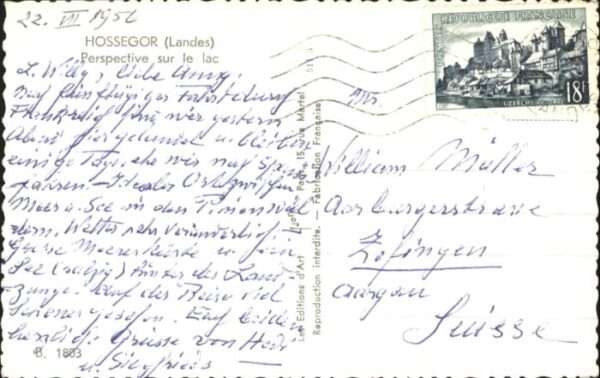 22. VII 1956
HOSSEGOR (Landes)
Perspective sur le lac
L. Willy, liebe Anny.
Nach fünftägiger Fahrt durch
Frankreich sind wir gestern
Abend hier gelandet u. bleiben
einige Tage, ehe wir nach Spanien
fahren. Idealer Ort zwischen
Meer u. See in den Pinienwäl
dern. Wetter sehr veränderlich.
Grosse Meeresküste u. ein
See (salzig) hinter der Land-
zunge. Auf der Reise viel
gesehen. Euch beiden
herzliche Grüsse von Hedi
u. Siegfried
B. 1883
Les Editions d'Art
Paris, 15, Rue Martel
Reproduction interdite. - Fabrication Française
REPUBLIQUE FRANÇAISE
18F
UZERCHE
William Müller
Aarburgerstrasse
Zofingen
Aargau
Suisse